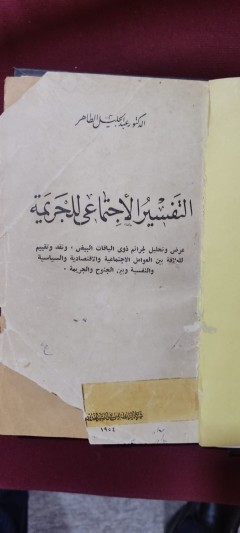 الدكتور عبد الجليل الطاهر
التفسير الاجتماعي للجريمة
عرض وتحليل لجرائم ذوى الياقات البيض ، ونقد وتقييم
للعلاقة بين العوامل الاجتماعية والاقتصادية والسياسية
والنفسية وبين الجنوح والجريمة .
١٩٥٤